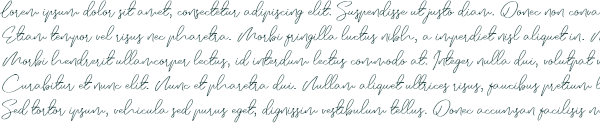 lorem ipsum dolor sit amet, consectetur adipiscing elit. Suspendisse ut justo diam. Donec non conva
Etiam tempor vel risus nec pharetra. Morbi fringilla luctus nibh, a imperdiet nisl aliquet in. M
Morbi hendrerit ullamcorper lectus, id interdum lectus commodo at. Integer nulla dui, volutpat v
Curabitur et nunc elit. Nunc et pharetra dui. Nullam aliquet ultrices risus, faucibus pretium l
Sed tortor ipsum, vehicula sed purus eget, dignissim vestibulum tellus. Donec accumsan facilisis n